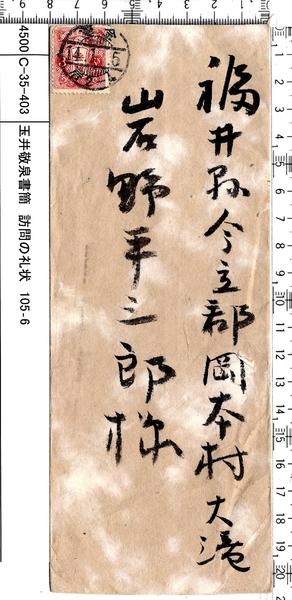 福井縣今立郡岡本村大滝
岩野平三郎様
4500 C-35-403 玉井敬泉書簡 訪問の礼状 105-6